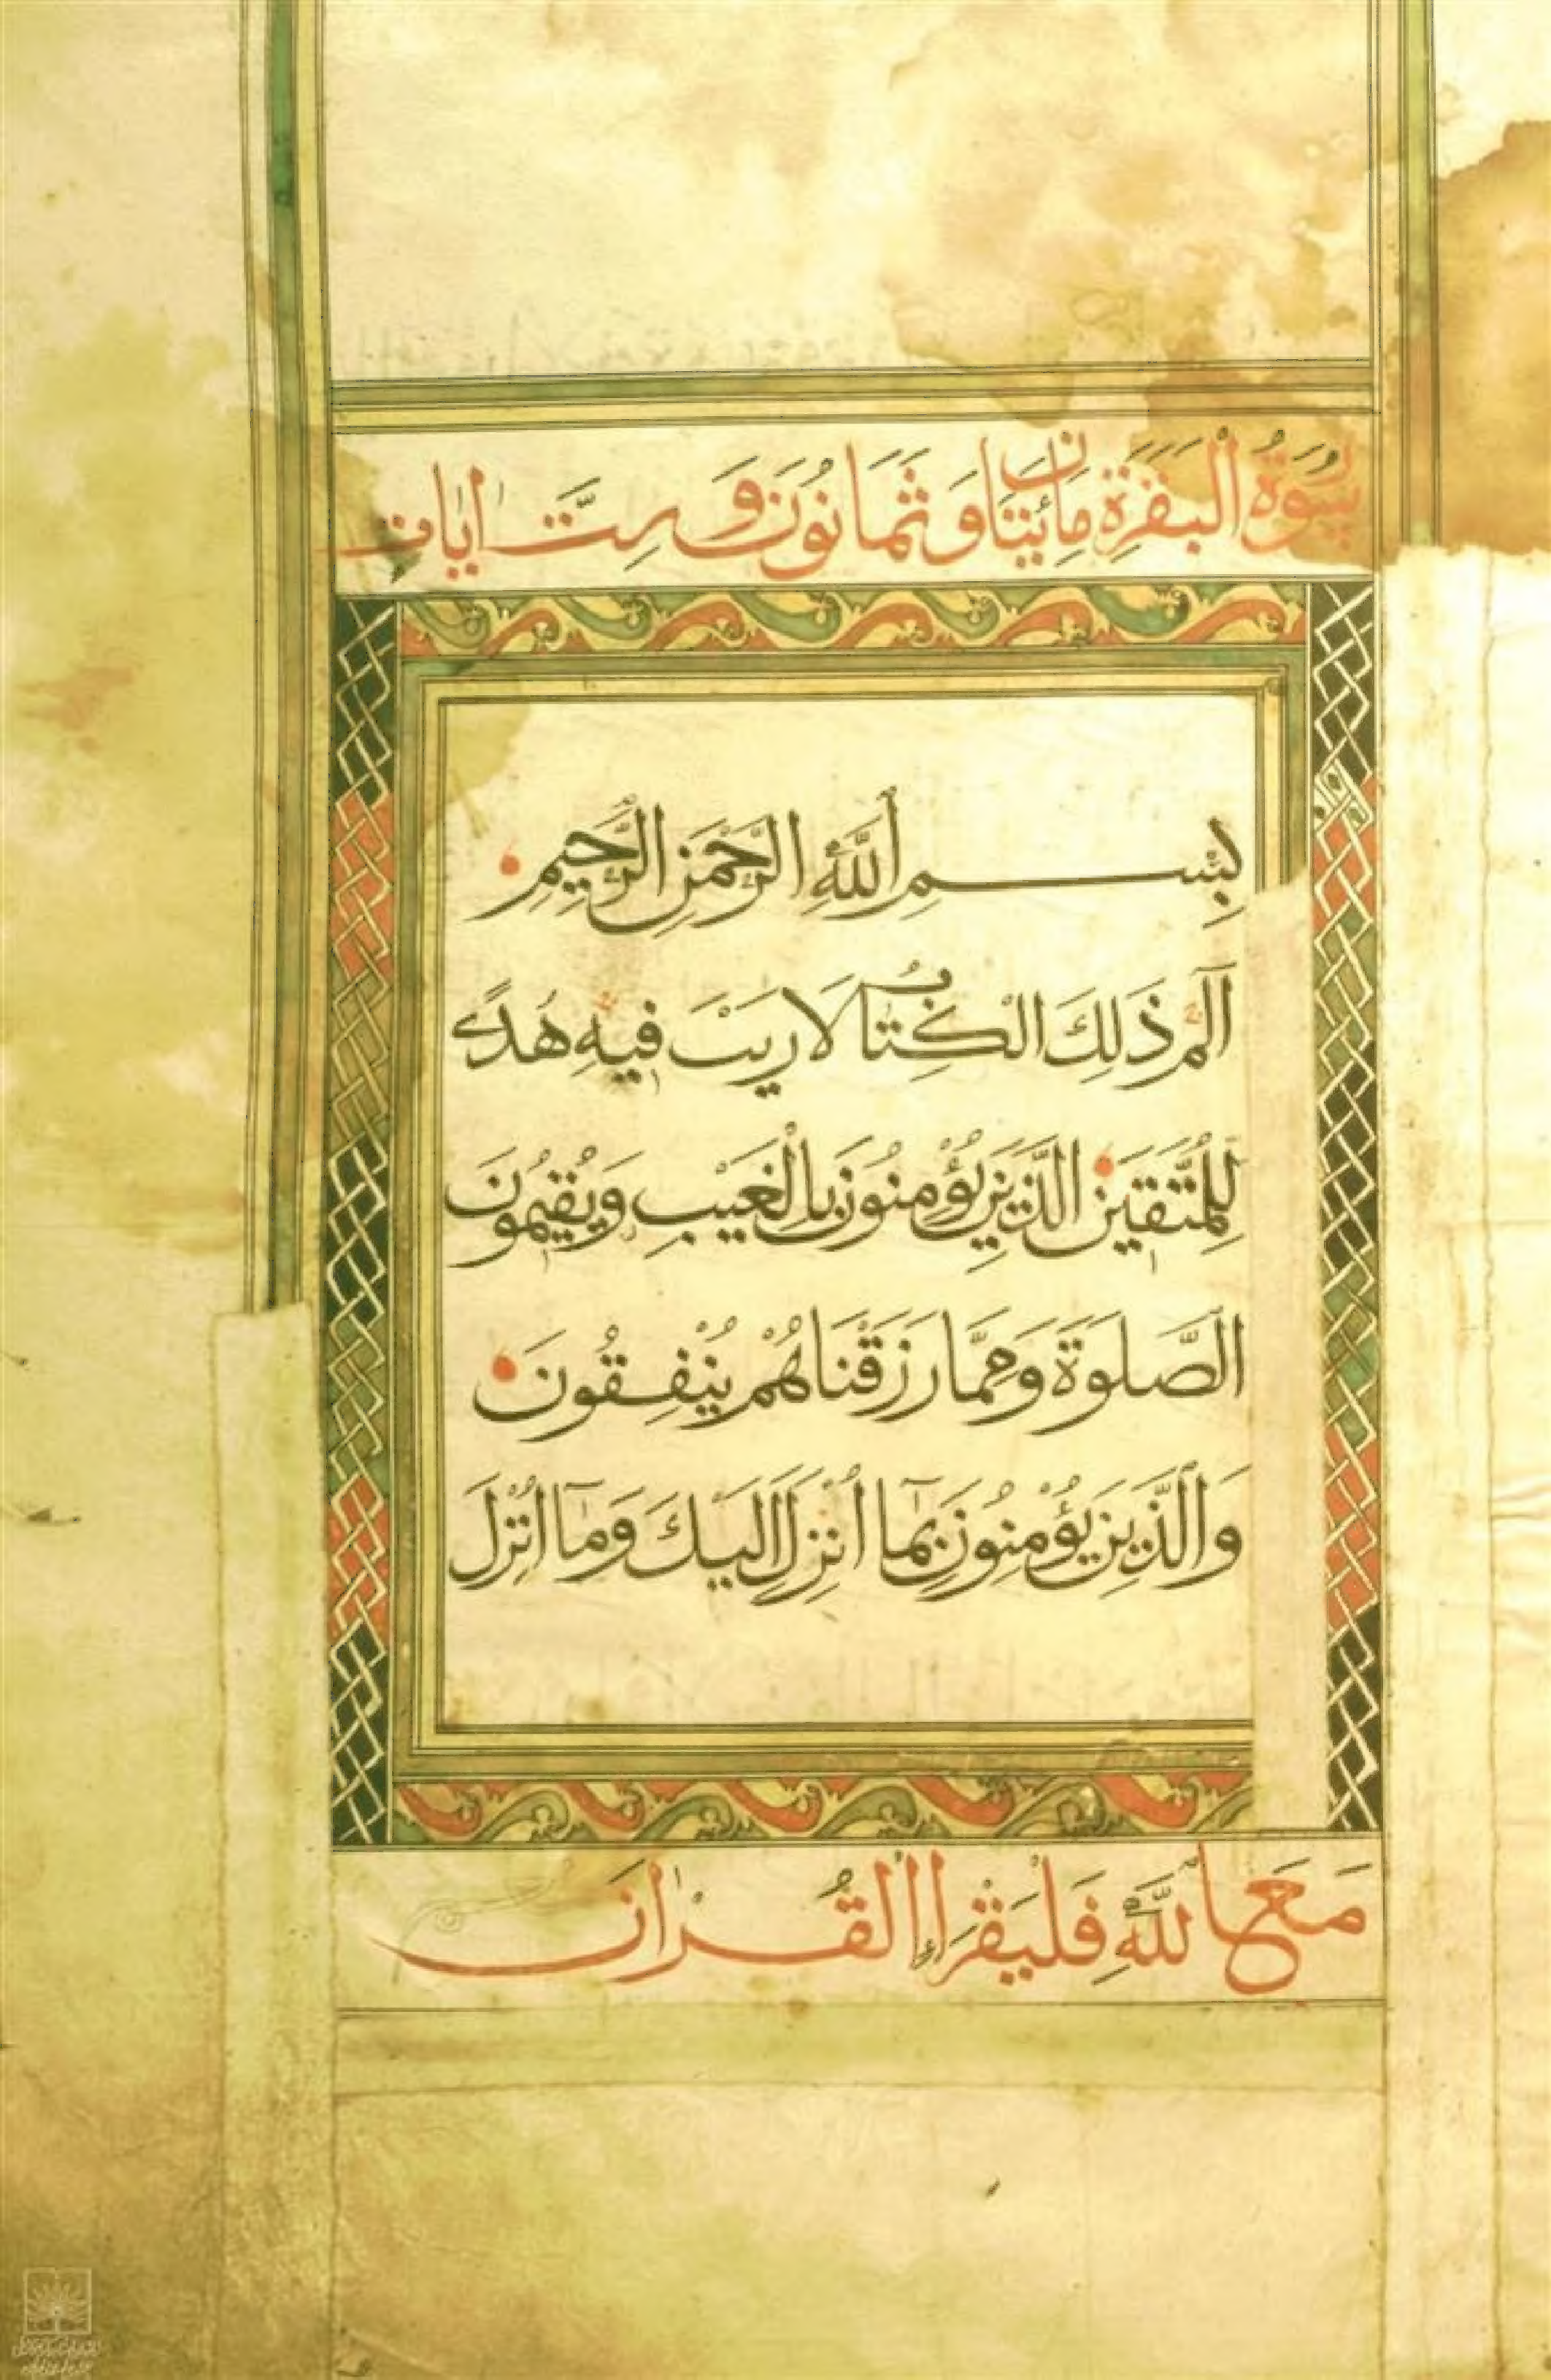 سُوْرَةُ الْبَقَرَةِ مِائَتَانِ وَثَمَانُوْنَ وَسِتَّ اٰيَاتٍ
بِسْمِ اللّٰهِ الرَّحْمٰنِ الرَّحِيْمِ
الٓمٓ ذٰلِكَ الْكِتَابُ لَا رَيْبَ فِيْهِ هُدًى
لِلْمُتَّقِيْنَ الَّذِيْنَ يُؤْمِنُوْنَ بِالْغَيْبِ وَيُقِيْمُوْنَ
الصَّلٰوةَ وَمِمَّا رَزَقْنَاهُمْ يُنْفِقُوْنَ
وَالَّذِيْنَ يُؤْمِنُوْنَ بِمَآ اُنْزِلَ اِلَيْكَ وَمَآ اُنْزِلَ
مَعَ اللّٰهِ فَلْيَقْرَاِ الْقُرْاٰنَ